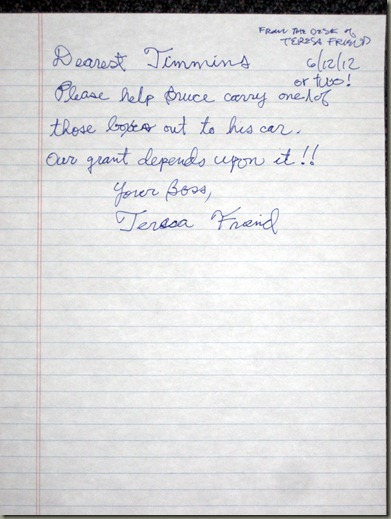 FROM THE DESK of
TERESA FRIEND
6/12/12
Dearest Timmins
or two!
Please help Bruce carry one/of
those boxes out to his car.
Our grant depends upon it!!
Your Boss,
Teresa Friend